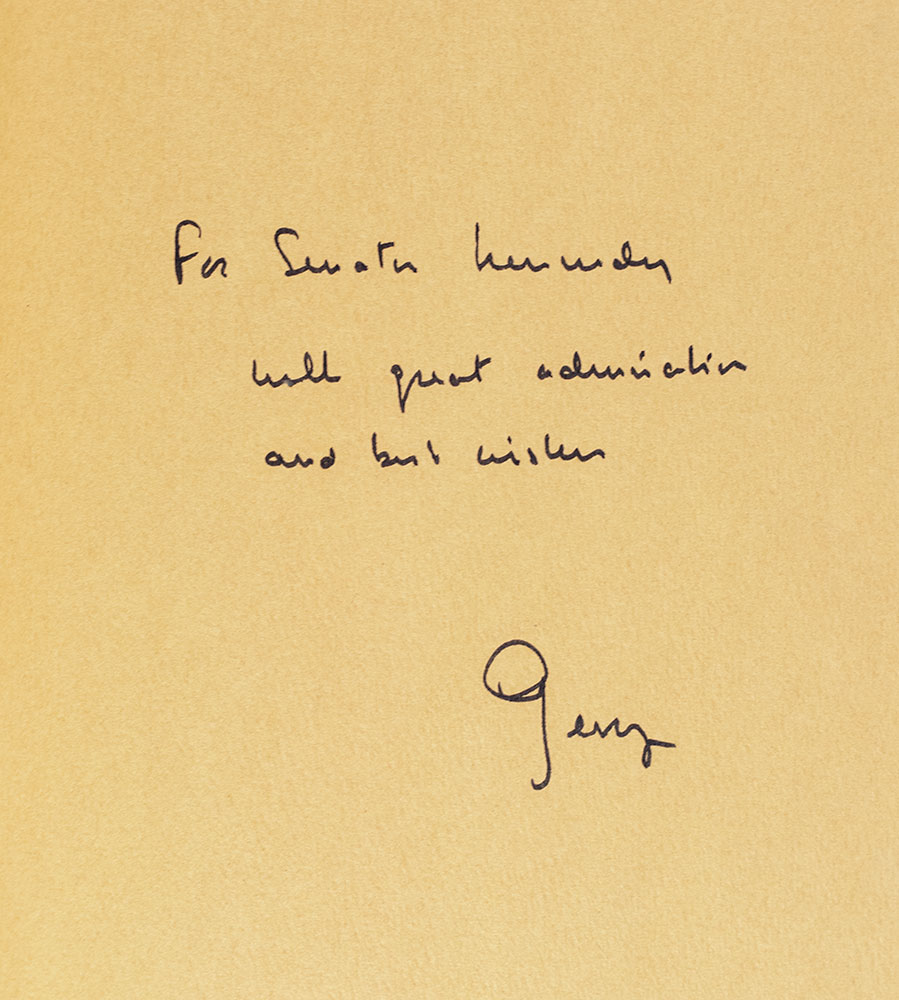 For Senator Kennedy
with great admiration
and best wishes
Gerry